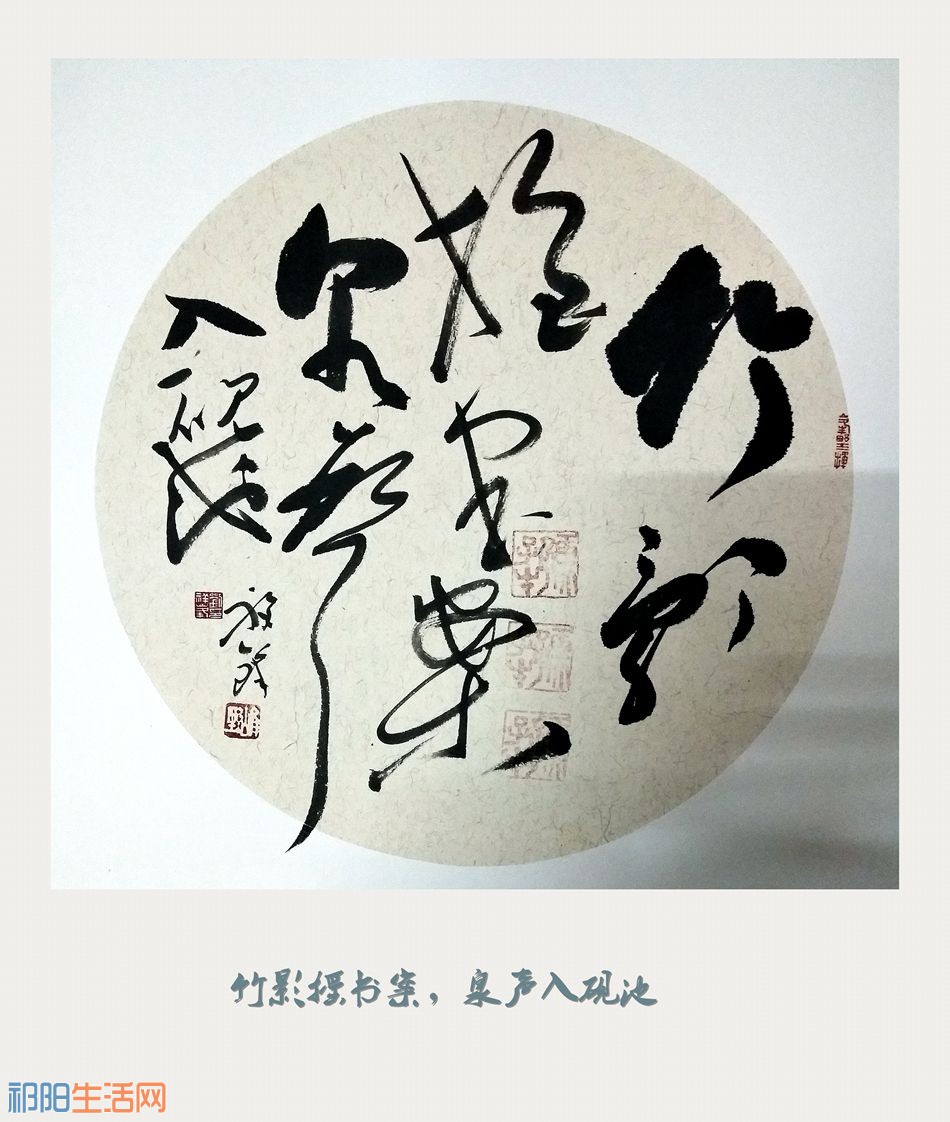 竹影
摇書案
泉聲
入硯池
竹影摇书案，泉声入砚池
祁阳生活网